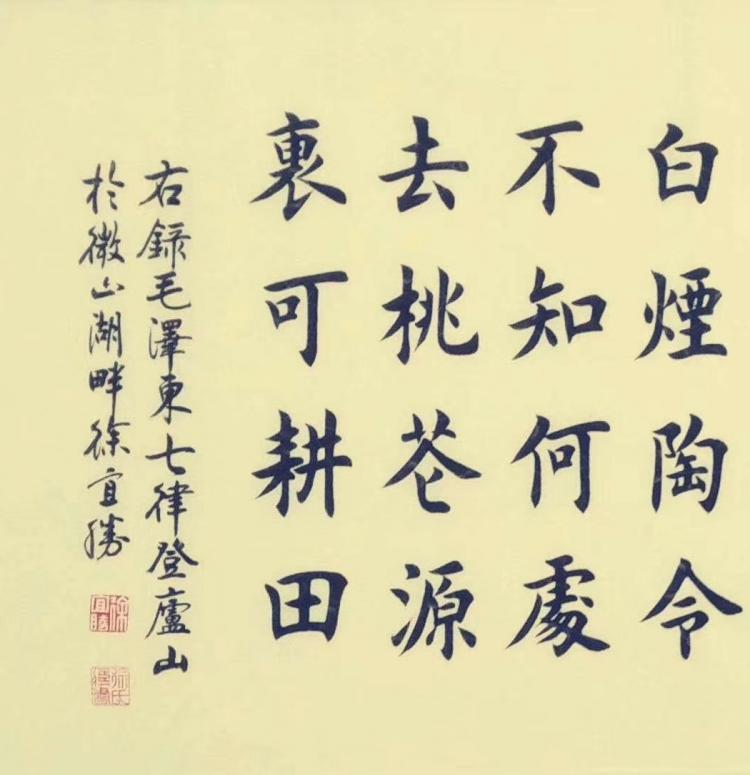 白煙陶令
不知何處
去桃花源
裏可耕田
右録毛澤東七律登廬山
於微山湖畔徐宜勝
徐宜勝